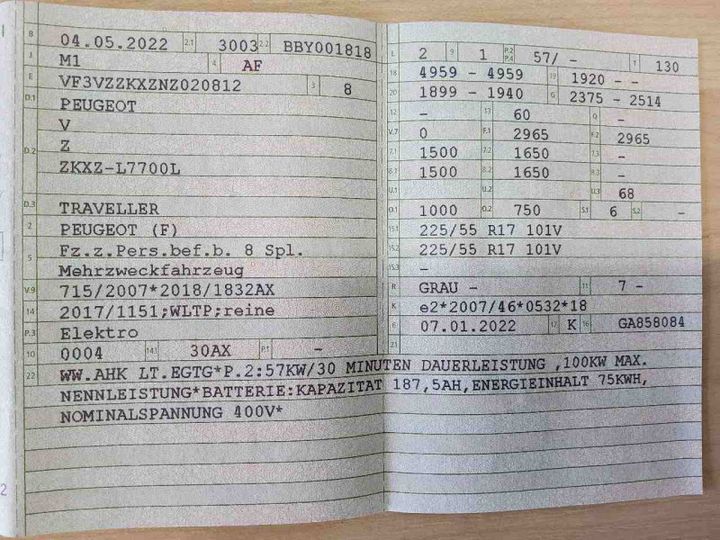 B 04.05.2022 2.1 3003 2.2 BBY001818
J M1 4 AF
E VF3VZZKXZNZ020812 3 8
D.1 PEUGEOT
V
Z
D.2 ZKXZ-L7700L
D.3 TRAVELLER
2 PEUGEOT (F)
5 Fz.z.Pers.bef.b. 8 Spl.
Mehrzweckfahrzeug
V.9 715/2007*2018/1832AX
14 2017/1151;WLTP;reine
P.3 Elektro
10 0004 14.1 30AX P.1 -
L 2 9 1 P.2 P.4 57/ - T 130
18 4959 - 4959 19 1920 - -
20 1899 - 1940 G 2375 - 2514
12 - 13 60 Q -
V.7 0 F.1 2965 F.2 2965
7.1 1500 7.2 1650 7.3 -
8.1 1500 8.2 1650 8.3 -
U.1 U.2 U.3 68
O.1 1000 O.2 750 S.1 6 S.2 -
15.1 225/55 R17 101V
15.2 225/55 R17 101V
15.3 -
R GRAU - 11 7 -
K e2*2007/46*0532*18
6 07.01.2022 17 K 16 GA858084
21
22 WW.AHK LT.EGTG*P.2:57KW/30 MINUTEN DAUERLEISTUNG ,100KW MAX.
NENNLEISTUNG*BATTERIE:KAPAZITAT 187,5AH,ENERGIEINHALT 75KWH,
NOMINALSPANNUNG 400V*
2